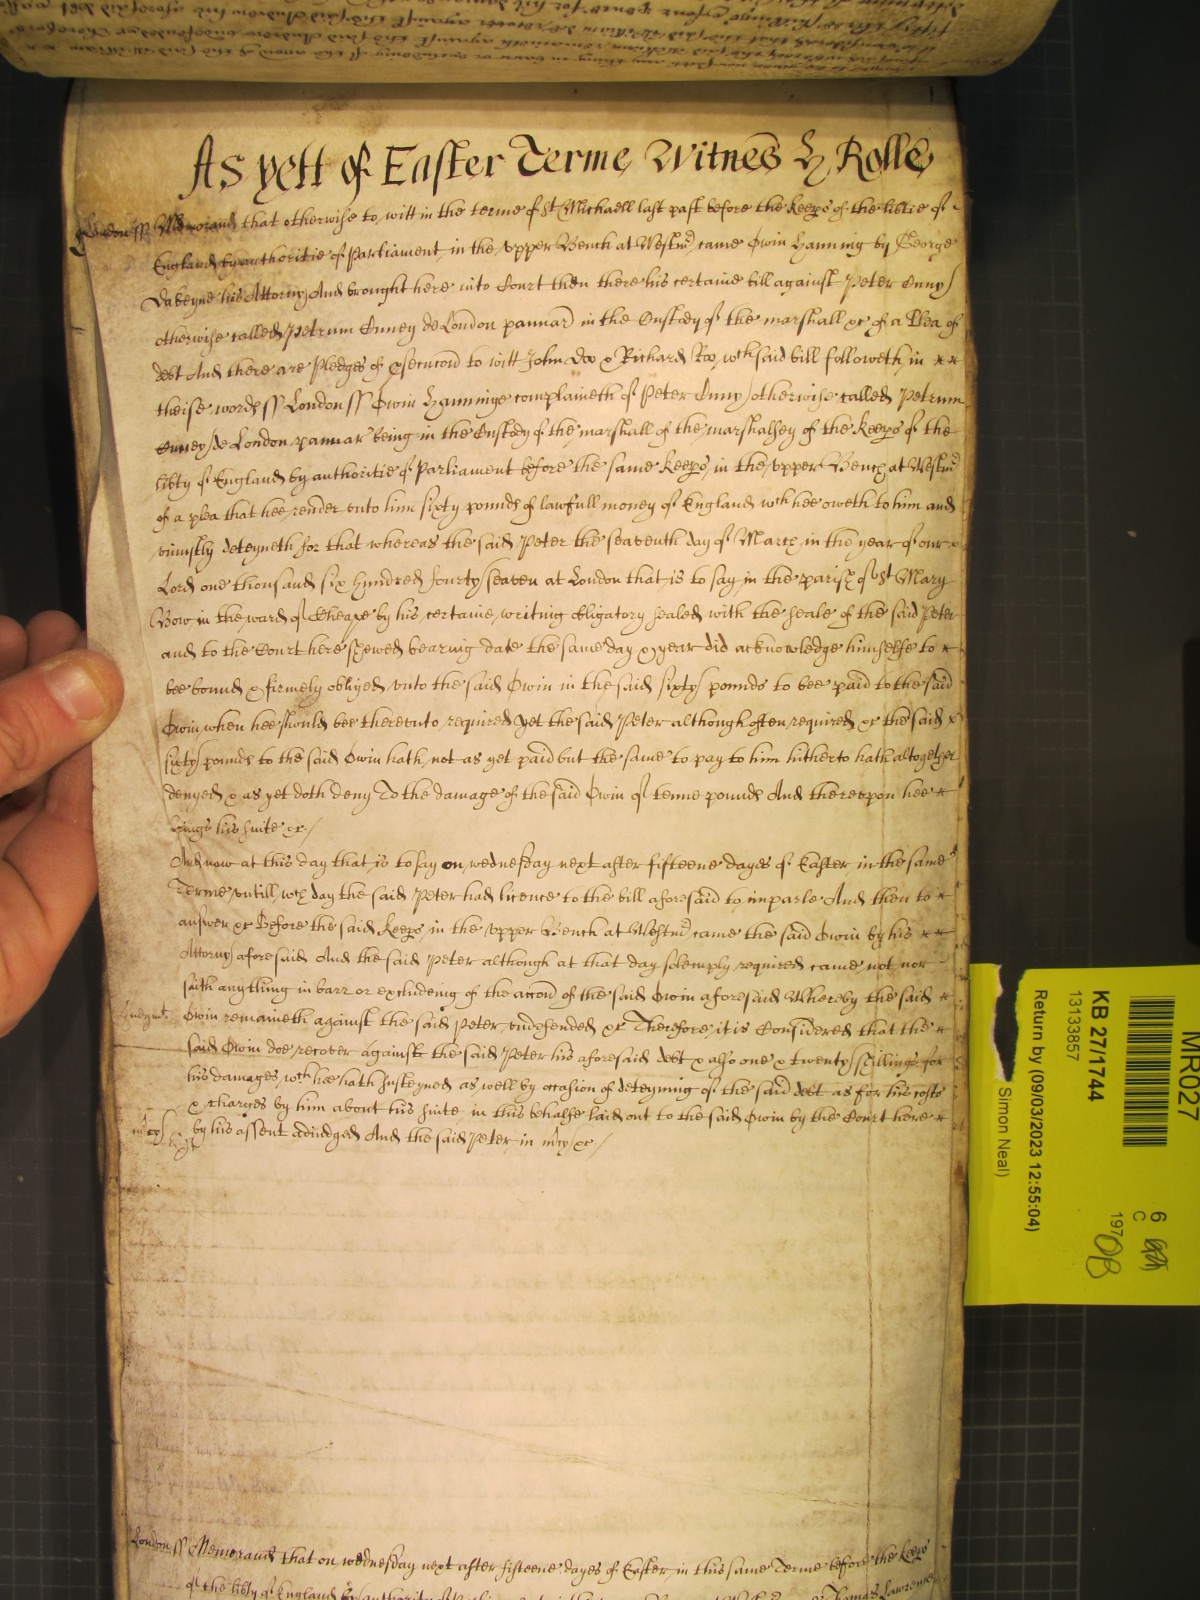 As yett of Easter Terme Witnes H Rolle
London ss Memorand that otherwise to witt in the terme of St Michaell last past before the Keeps of the libtie of
England by authoritie of Parliament in the vpper Bench at Westm came Owin Hanning by George
Dabeyne his Attorny And brought here into Court then there his certaine bill against Peter Onny
otherwise called Petrum Onney de London pannar in the Custody of the marshall &c of a Plea of
debt And there are Pledges of psecucon to witt John Doo & Richard Roo wch said bill followeth in
theise words ss London ss Owin Hanninge complaineth of Peter Onny otherwise called Petrum
Onney de London pannar being in the Custody of the marshall of the marshalsey of the Keeps of the
libty of England by authoritie of Parliament before the same Keeps in the vpper Bench at Westm
of a plea that hee render vnto him sixty pounds of lawfull money of England wch hee oweth to him and
viniustly deteyneth for that whereas the said Peter the seaventh day of March in the year of our
Lord one thousand six hundred fourty seaven at London that is to say in the parish of St Mary
Bow in the ward of Cheape by his certaine writing obligatory sealed with the seale of the said Peter
and to the Court here shewed bearing date the same day & year did acknowledge himselfe to
bee bound & firmely obliged vnto the said Owin in the said sixty pounds to bee paid to the said
Owin when hee should bee therevnto required Yet the said Peter although often required &c the said
sixty pounds to the said Owin hath not as yet paid but the same to pay to him hitherto hath altogether
denyed & as yet doth deny To the damage of the said Owin of tenne pounds And therevpon hee
brings his suite &c
And now at this day that is to say on wednesday next after fifteene dayes of Easter in the same
Terme vntill wch day the said Peter had licence to the bill aforesaid to imparle And then to
answer &c Before the said Keeps in the vpper Bench at Westm came the said Owin by his
Attorny aforesaid And the said Peter although at that day solemply required came not nor
saith anything in barr or excludeing of the accon of the said Owin aforesaid Whereby the said
Judgmt
Owin remaineth against the said Peter vndefended &c Therefore it is Considered that the
said Owin doe recover against the said Peter his aforesaid debt & also one & twenty shillings for
his damages wch hee hath susteyned as well by occasion of deteyning of the said debt as for his costs
& charges by him about his suite in this behalfe laid out to the said Owin by the Court here
mcy
by his assent adiudged And the said Peter in mcy &c
London ss Memorand that on wednesday next after fifteene dayes of Easter in this same Terme before the Keeps
of the libty of England by authority of Thomas Lawrence
MR027
KB 27/1744
13133857
Return by (09/03/2023 12:55:04)
Simon Neal)
6
C
197